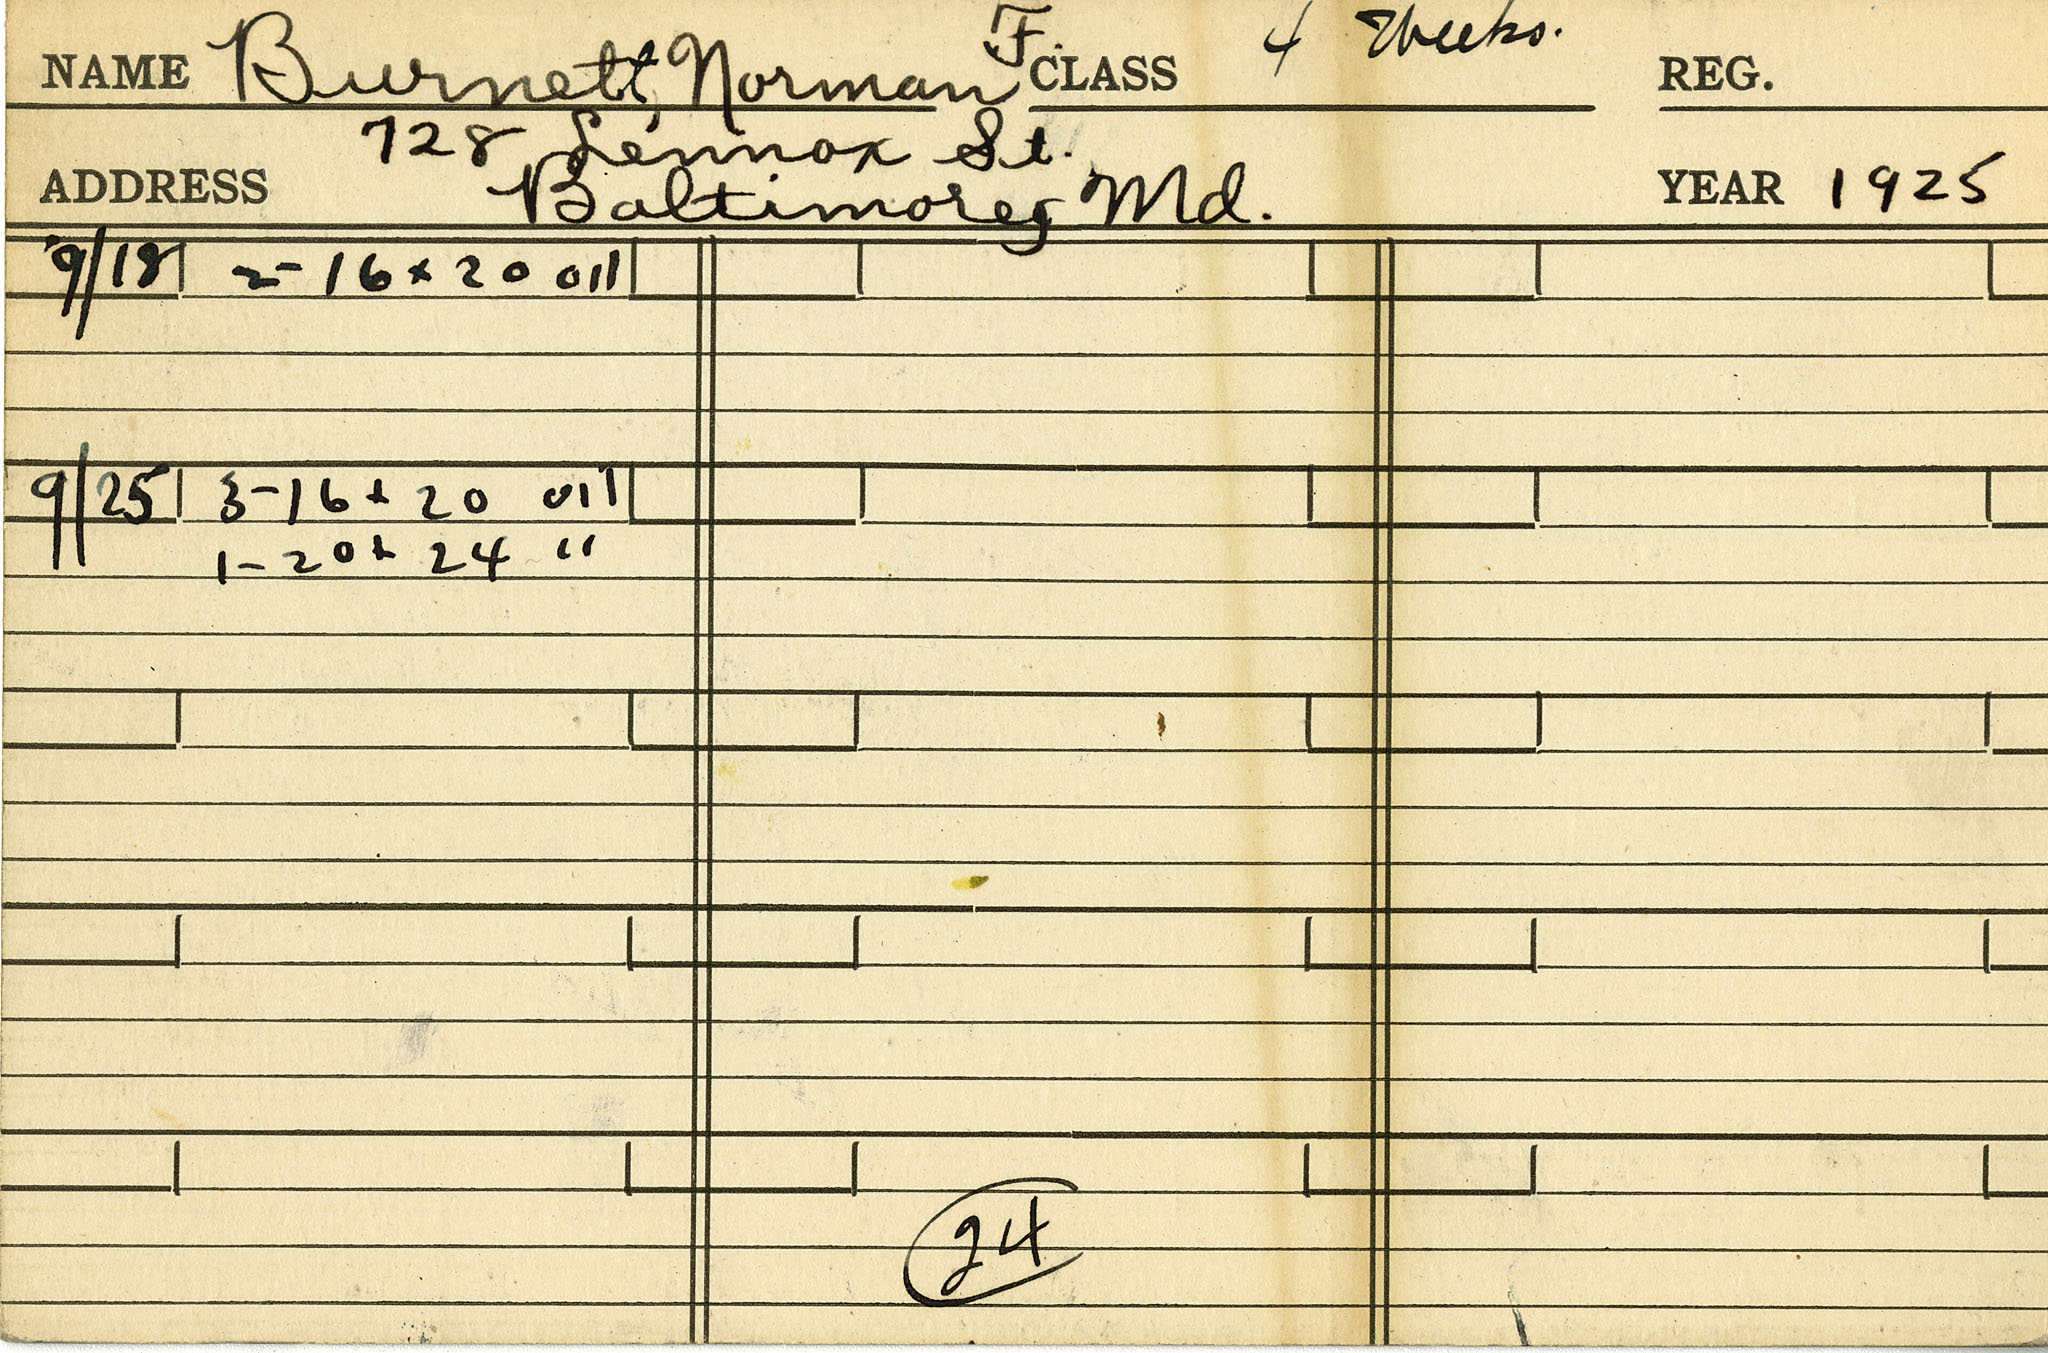 NAME Burnett, Norman F. CLASS 4 Weeks. REG.
728 Lennox St.
ADDRESS Baltimore, Md. YEAR 1925
9/18 2-16 x 20 oil
9/25 3-16 x 20 oil
1-20 x 24 "
24